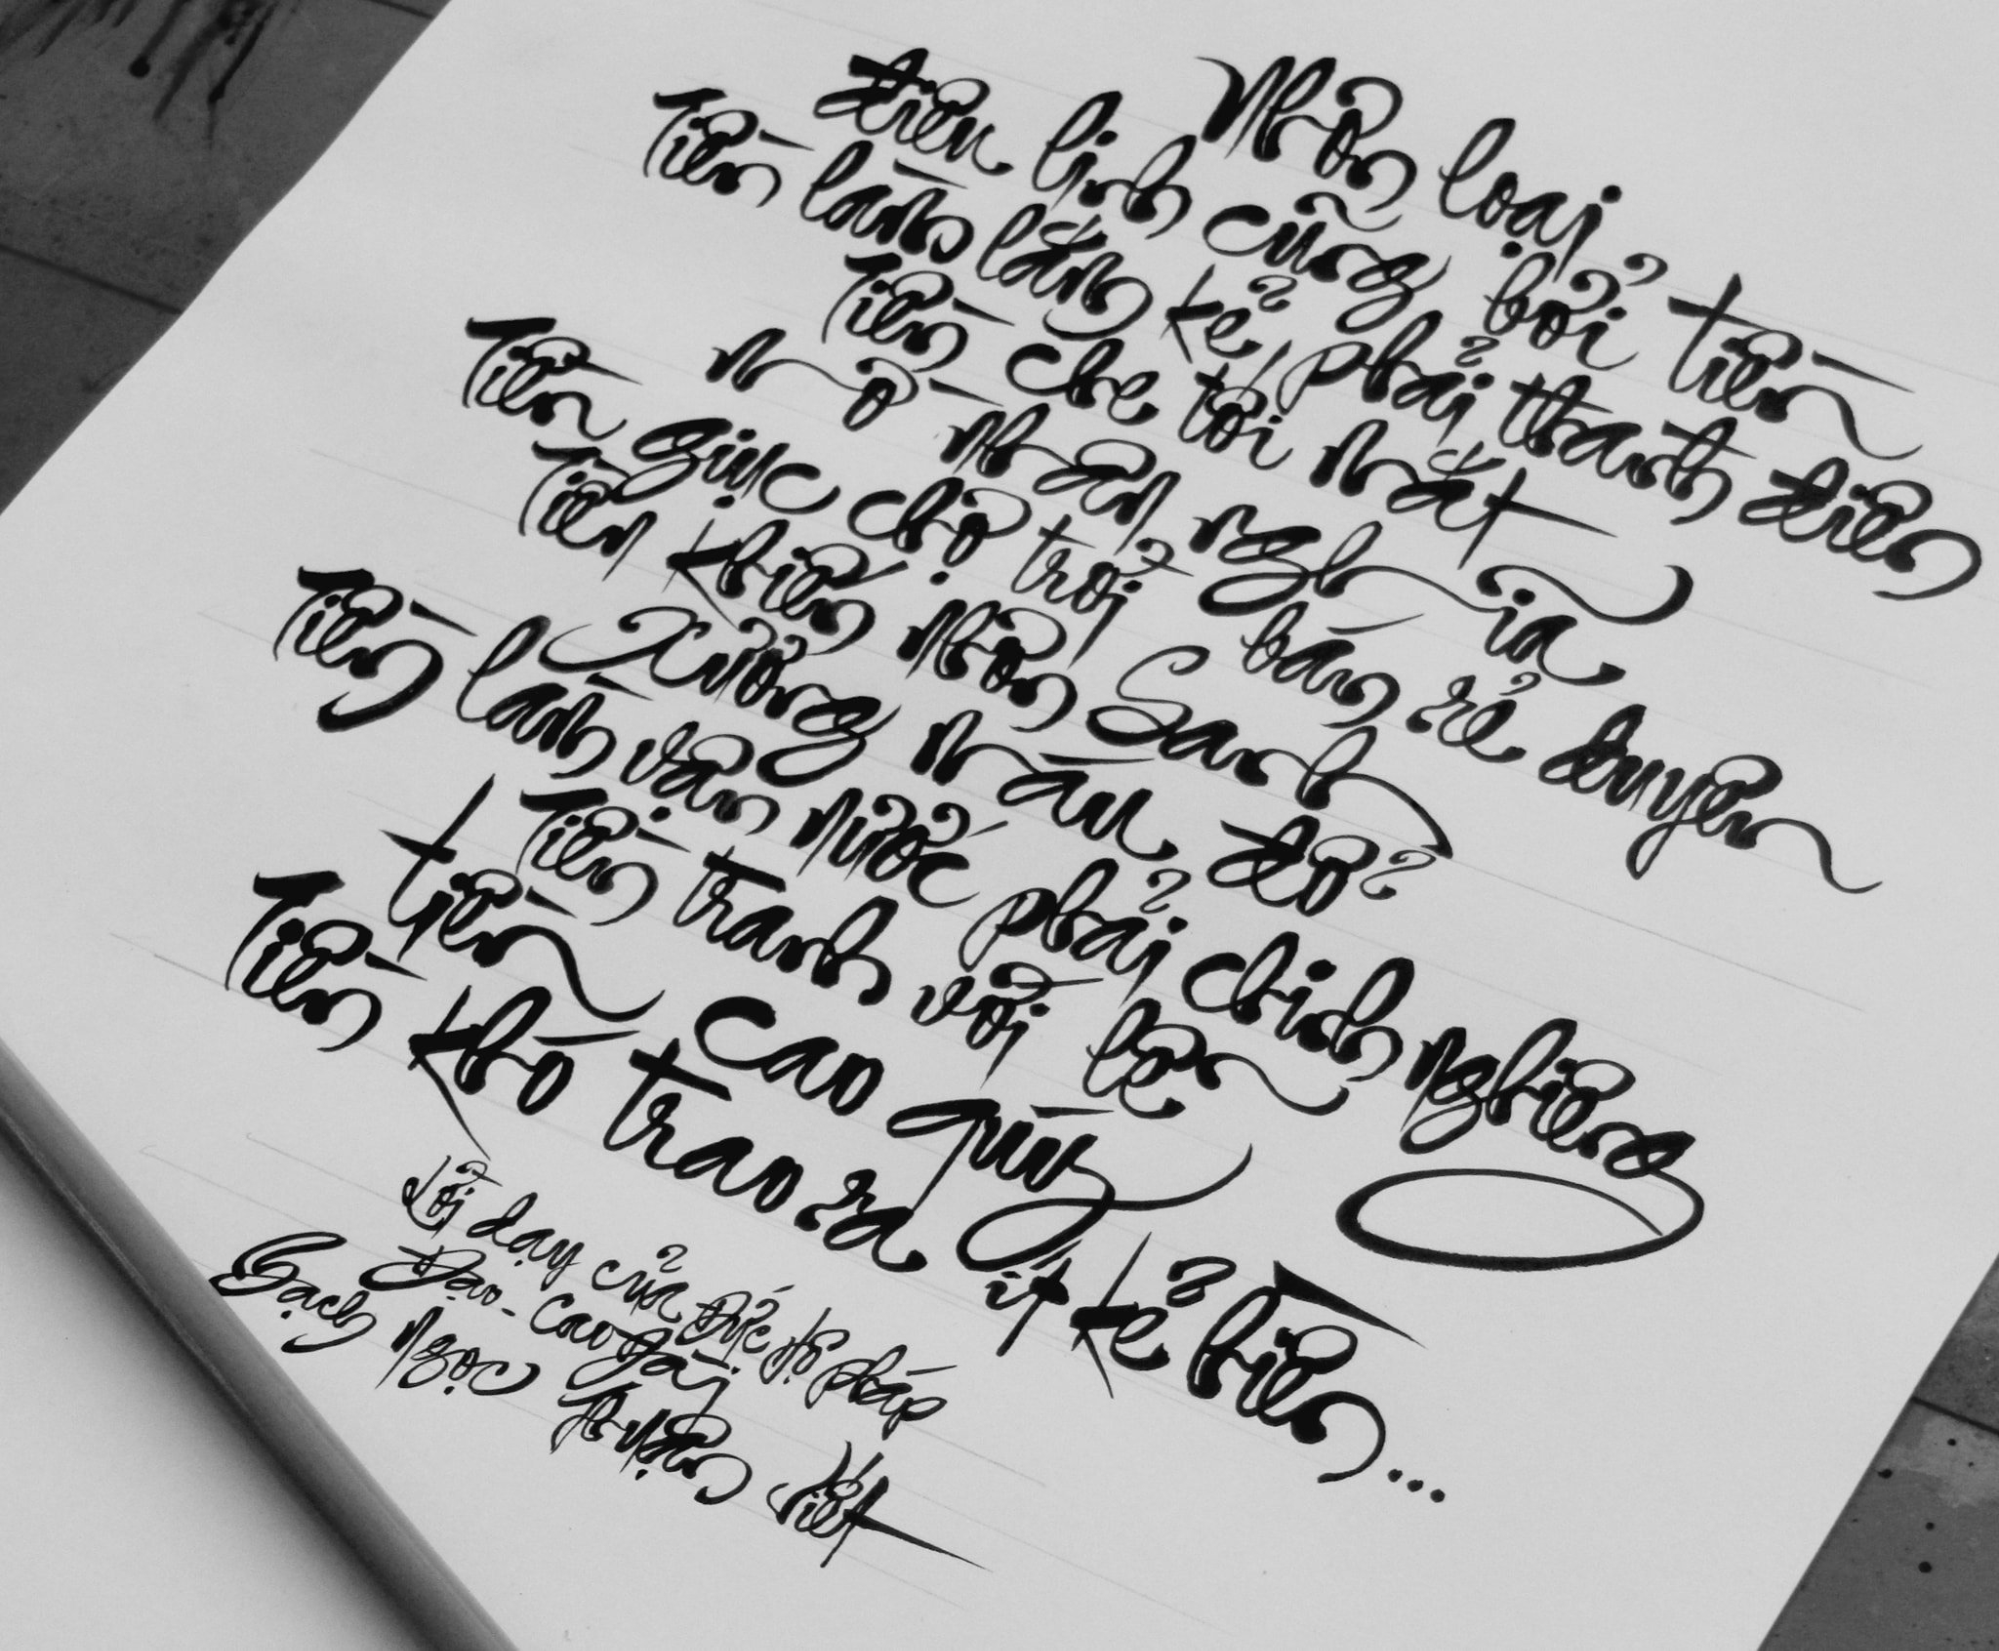 Nhơn loại
điêu linh cũng bởi tiền
Tiền làm lắm kẻ phải thành điên
Tiền che tối mắt
mờ nhân nghĩa
Tiền giục chợ trời bán rẻ duyên
Tiền khiến nhơn Sanh
Xương máu đổ
Tiền làm vận nước phải chinh nghiêng
Tiền tranh với lẽ
tiền cao quý
Tiền khó trao ra ít kẻ hiền...
Lời dạy của Đức Hộ Pháp
Đạo - Cao Đài
Ngọc Thuận viết